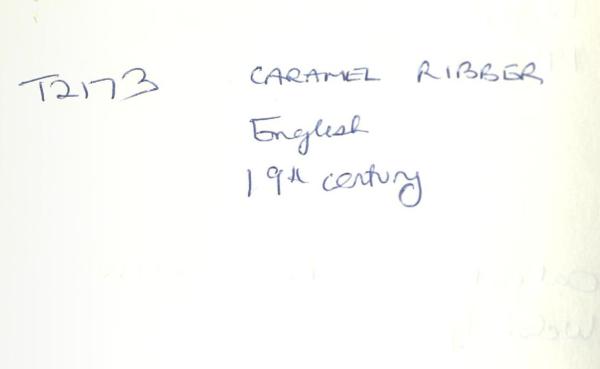 T2173 CARAMEL RIBBER
English
19th century